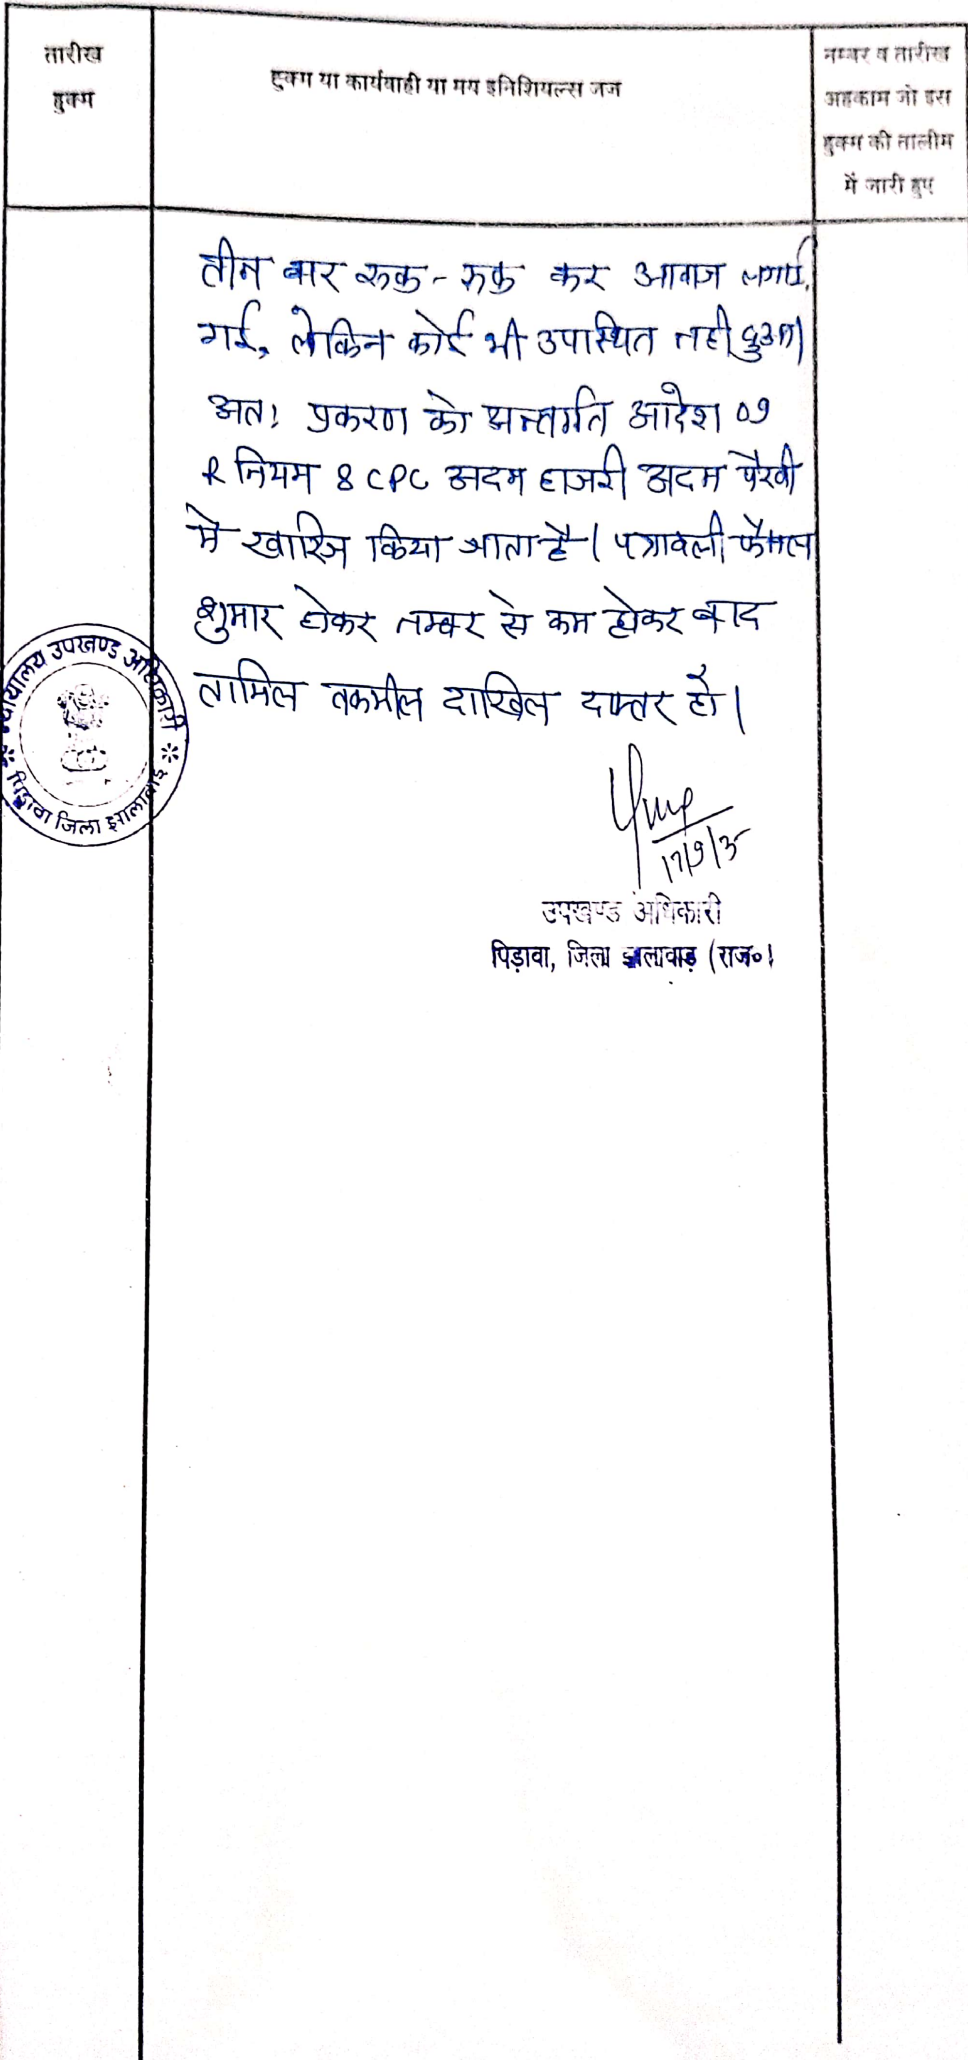 तारीख
हुक्म
हुक्म या कार्यवाही या मय इनिशियल्स जज
नम्बर व तारीख
अहकाम जो इस
हुक्म की तालीम
में जारी हुए
तीन बार रूक-रूक कर आवाज लगाई
गई, लेकिन कोई भी उपस्थित नही हुआ।
अतः प्रकरण को अन्तर्गत आदेश 09
R नियम 8 CPC अदम हाजरी अदम पैरवी
मे खारिज किया जाता है। पत्रावली फैसल
शुमार होकर नम्बर से कम होकर बाद
तामिल तकमील दाखिल दफ्तर हो।
न्यायालय उपखण्ड अधिकारी
पिड़ावा जिला झालावाड़
17/9/25
उपखण्ड अधिकारी
पिड़ावा, जिला झालावाड़ (राज०)